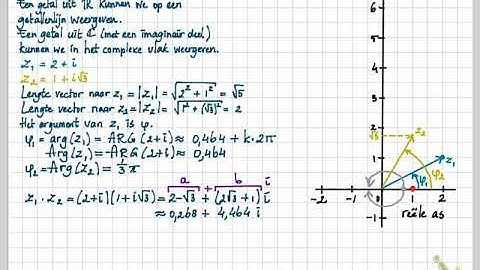 Een getal uit ℝ kunnen we op een
getallenlijn weergeven.
Een getal uit ℂ (met een imaginair deel)
kunnen we in het complexe vlak weergeven.
z₁ = 2 + i
z₂ = 1 + i√3
Lengte vector naar z₁ = |z₁| = √(2² + 1²) = √5
Lengte vector naar z₂ = |z₂| = √(1² + (√3)²) = 2
Het argument van z₁ is φ.
φ₁ = arg(z₁) = ARG(2+i) ≈ 0,464 + k·2π
Arg(z₁) = ARG(2+i) ≈ 0,464
φ₂ = Arg(z₂) = 1/3 π
a b
z₁ · z₂ = (2+i)(1+i√3) = 2-√3 + (2√3 + 1) i
≈ 0,268 + 4,464 i
6
5
4
3
2
√3
z₂
1
z₁
φ₁
φ₂
-2 -1 0 1 2
-1
reële as